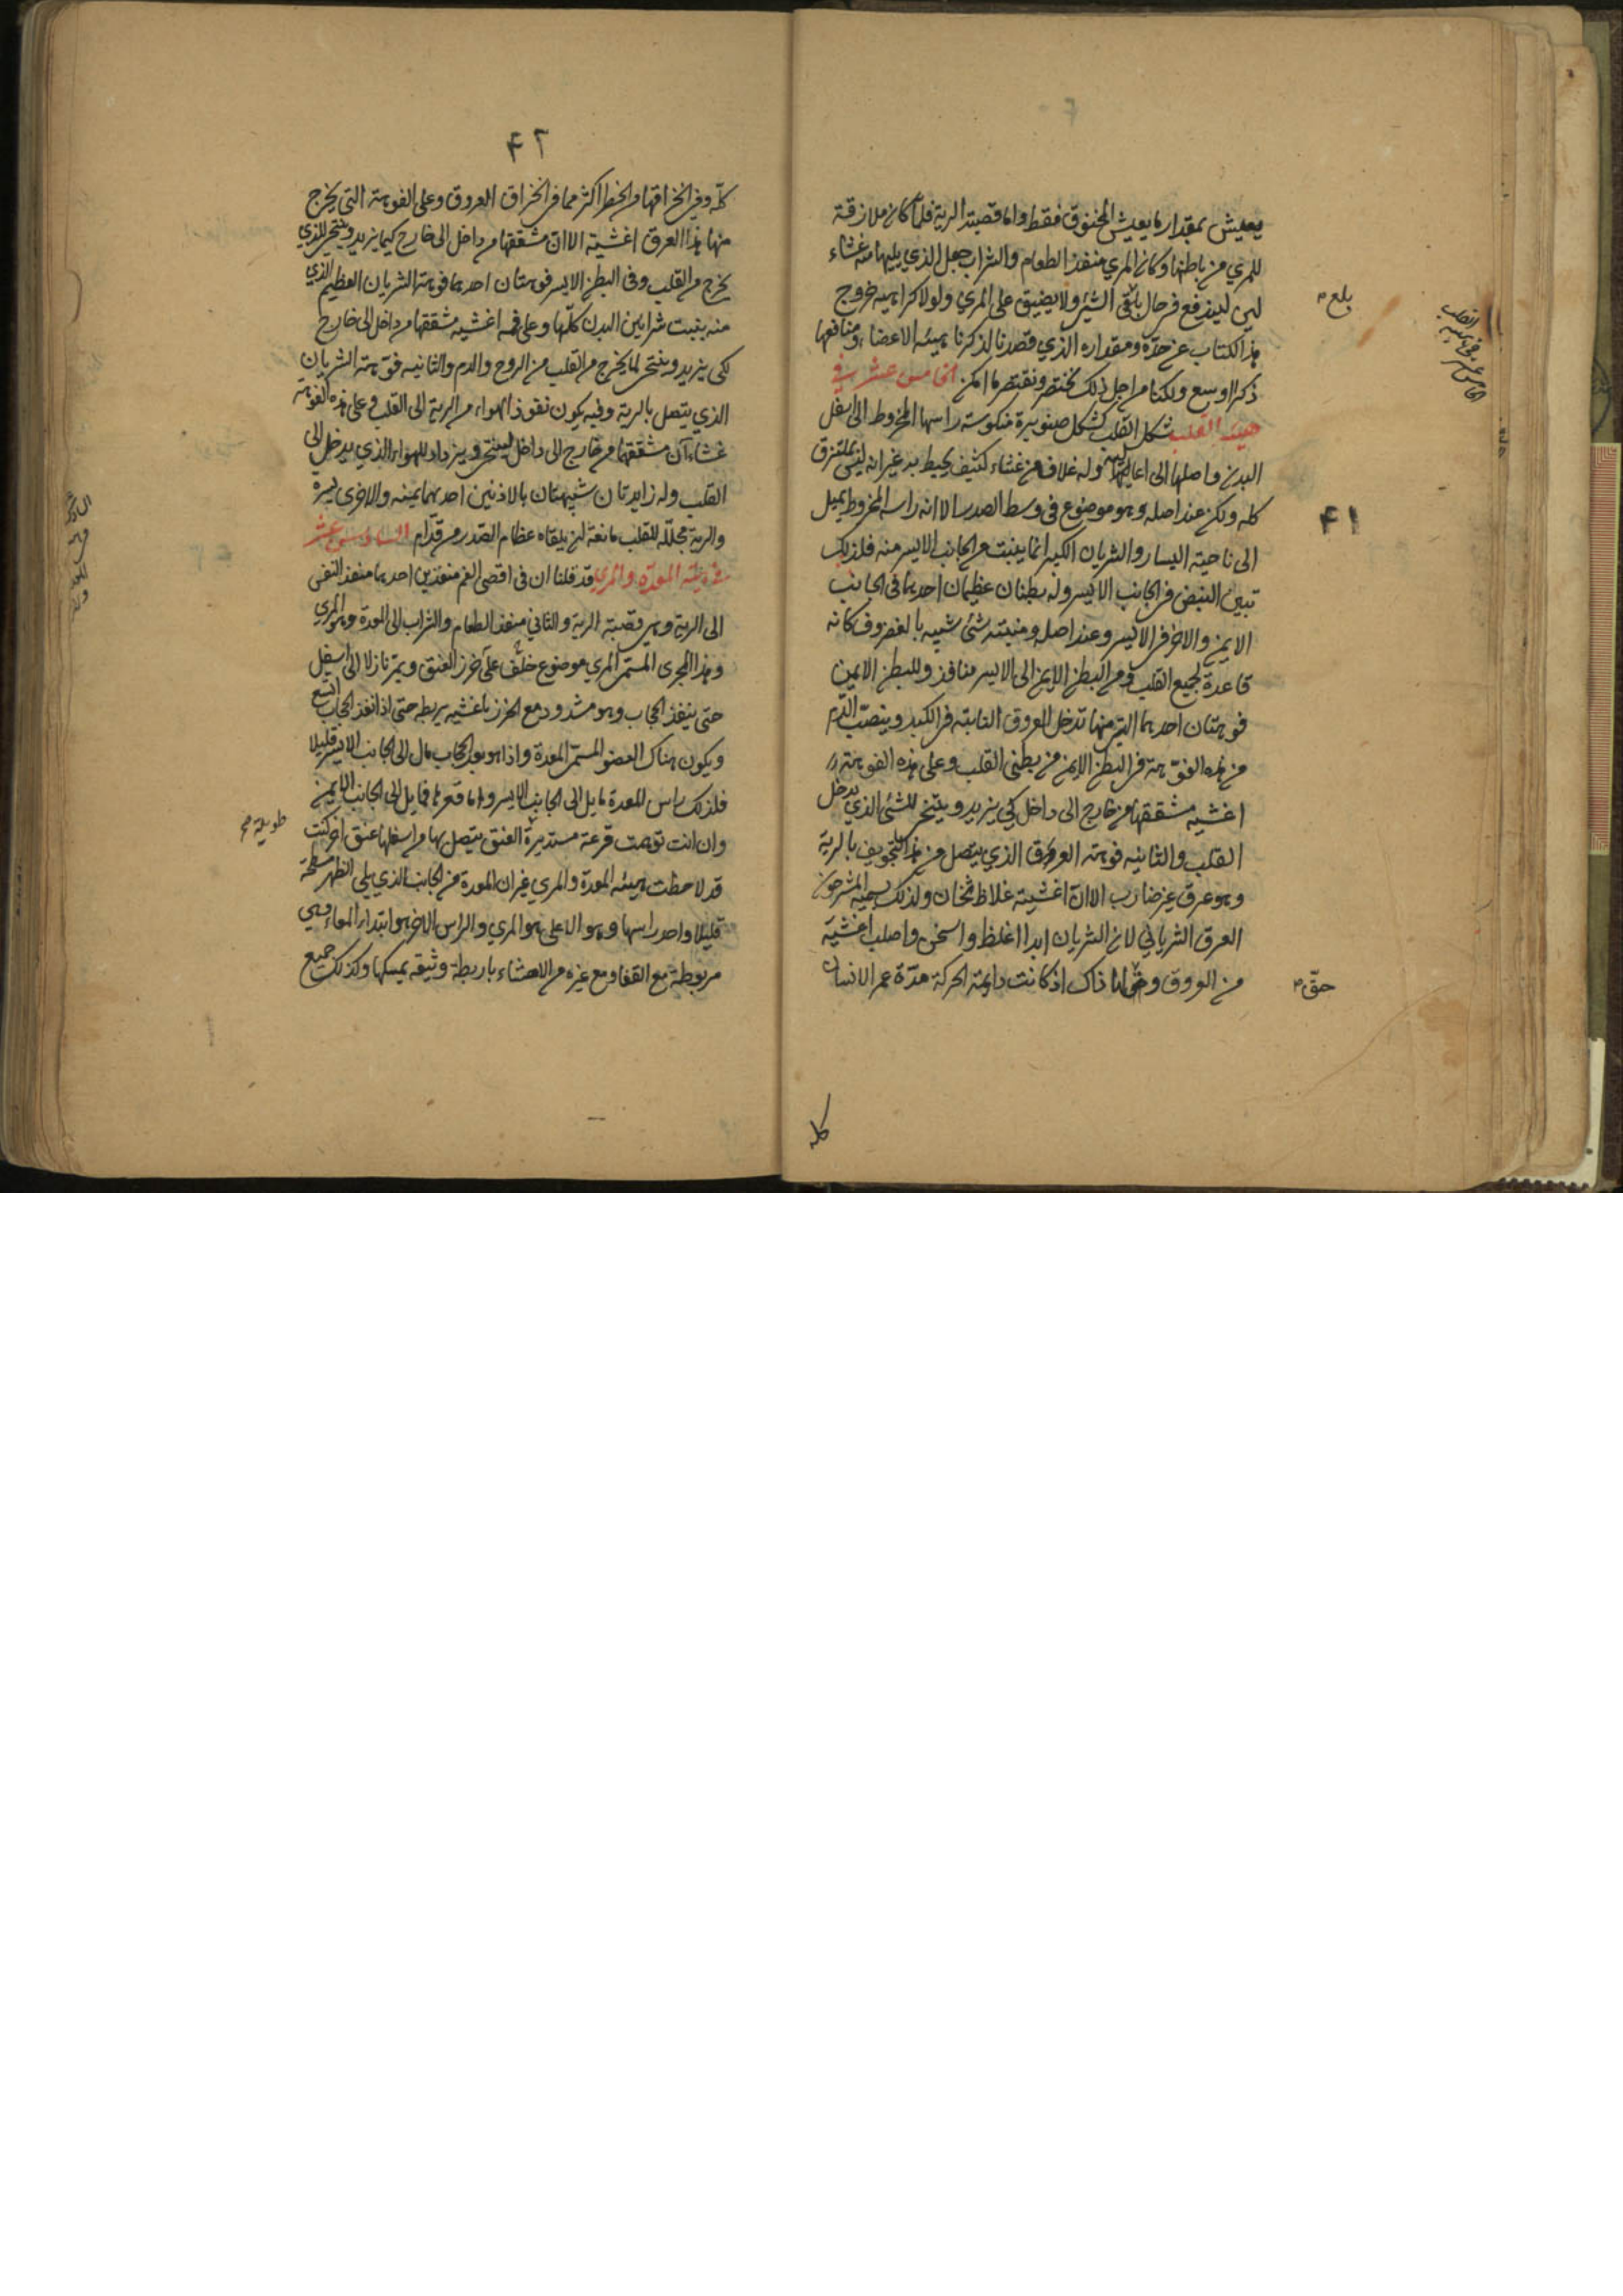 يعيش بمقدار ما يعيش المخنوق فقط واما قصبة الرية فلما كان ملازقة
للمري من باطنها وكان المري منفذ الطعام والشراب جعل الذي يليها منه غشاء
لين ليندفع في حال الشيء ولا يضيق على المري ولولا كراهية خروج
بلع
هذا الكتاب عن حده ومقداره الذي قصدنا لذكرنا هيئة الاعضاء ومنافعها
ذكرا اوسع ولكنا من اجل ذلك نختصر ونقتصر ما امكن الخامس عشر في
هيئة القلب شكل القلب كشكل صنوبرة منكوسة راسها المخروط الى اسفل
البدن واصلها الى اعاليه وله غلاف من غشاء كثيف يحيط به غير انه ليس بملتزق
كله ولكن عند اصله وهو موضوع في وسط الصدر الا ان راسه المخروط يميل
۴۱
الى ناحية اليسار والشريان الكبير انما ينبت من الجانب الايسر منه فلذلك
تبين النبض في الجانب الايسر وله بطنان عظيمان احدهما في الجانب
الايمن والاخر في الايسر وعند اصله ومنبته شئ شبيه بالغضروف كانه
قاعدة لجميع القلب ومن البطن الايمن الى الايسر منافذ وللبطن الايمن
فوهتان احدهما التي منها تدخل العروق النابتة في الكبد وينصب الدم
من هذه الفوهة في البطن الايمن من بطنى القلب وعلى هذه الفوهة
اغشيه مشققها من خارج الى داخل كي يزيد وينتحر للشئ الذي يدخل
القلب والثانيه فوهة العروق الذي يتصل من هذا التجويف بالرية
وهو عرق غير ضارب الا ان اغشيته غلاظ ثخان ولذلك يسميه المشرحون
العرق الشرياني لان الشريان ابدا اغلظ واسخن واصلب اغشية
من العروق وحق لها ذاك اذ كانت دايمة الحركة مدة عمر الانسان
حق
كله
۴۲
كله وفي انخراقها من الخطر اكثر مما في انخراق العروق وعلى الفوهة التي يخرج
منها هذا العرق اغشية الا ان مشققها من داخل الى خارج كيما يزيد وينتحر للذي
يخرج من القلب وفى البطن الايسر فوهتان احدهما فوهة الشريان العظيم الذي
منه ينبت شرايين البدن كلها وعلى فمه اغشيه مشققها من داخل الى خارج
لكى يزيد وينتحر لما يخرج من القلب من الروح والدم والثانيه فوهة الشريان
الذي يتصل بالرية وفيه يكون نفوذ الهواء من الرية الى القلب وعلى هذه الفوهة
غشاءان مشققهما من خارج الى داخل لينتحر ويزداد للهواء الذي يدخل الى
القلب وله زايدتان شبيهتان بالاذنين احدهما يمنه والاخرى يسرة
والرية مجلله للقلب مانعة لن يلقاه عظام الصدر من قدام السادس عشر
في هيئة المعدة والمري قد قلنا ان في اقصى الفم منفذين احدهما منفذ النفس
الى الرية وهي قصبة الرية والثاني منفذ الطعام والشراب الى المعدة وهو المري
وهذا المجرى المستمى المري موضوع خلف على خرز العنق ويمر نازلا الى اسفل
حتى ينفذ الحجاب وهو مشدود مع الخرز باغشيه يربطه حتى اذا نفذ الحجاب اتسع
ويكون هناك العضو المستمى المعدة واذا هو بعد الحجاب مال الى الجانب الايسر قليلا
فلذلك راس المعدة مايل الى الجانب الايسر واما قعرها فمايل الى الجانب الايمن
وان انت توهمت قرعة مستديرة العنق يتصل بها من اسفلها عنق اخر كنت
طويلة
قد لاحظت هيئة المعدة والمري غير ان المعدة من الجانب الذي يلى الظهر مسطحة
قليلا واحد راسها وهو الاعلى هو المري والراس الاخر هو ابتداء المعاء وهى
مربوطة مع القفا ومع غيره من الاحشاء باربطة وثيقه يمسكها وكذلك جميع